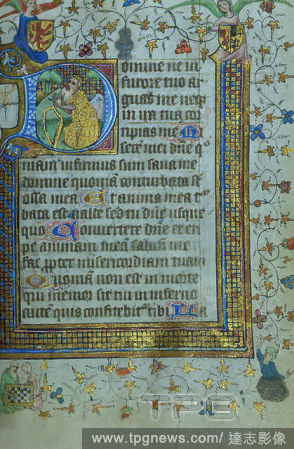 Domine ne in
furore tuo ar
guas me neq
in ira tua cor
ripias me M
serere mei dne q
niam infirmus sum sana me
domine quoniam conturbata sut
ossa mea Et anima mea tur
bata est valde sed tu dne usque
quo Convertere dne et eri
pe animam meam salvum me
fac propter misericordiam tuam
Quoniam non est in morte
qui memor sit tui in inferno
aute quis confitebit tibi La
TPG
www.tpgnews.com / 達志影像